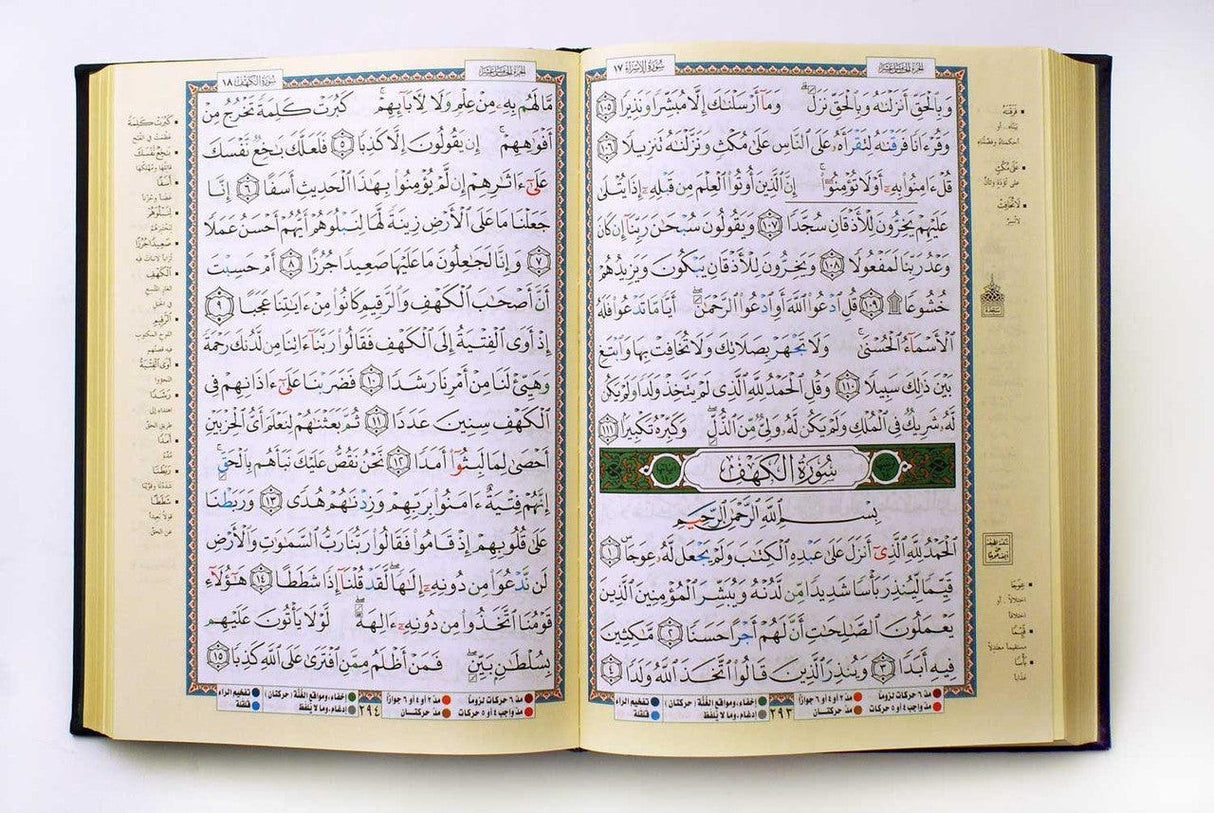 سُورَةُ الإِسْرَاءِ ١٧
الجُزْءُ الخَامِسَ عَشَرَ
وَبِالْحَقِّ أَنزَلْنَٰهُ وَبِالْحَقِّ نَزَلَ ۗ وَمَآ أَرْسَلْنَٰكَ إِلَّا مُبَشِّرًا وَنَذِيرًا ١٠٥
وَقُرْءَانًا فَرَقْنَٰهُ لِتَقْرَأَهُۥ عَلَى النَّاسِ عَلَىٰ مُكْثٍ وَنَزَّلْنَٰهُ تَنزِيلًا ١٠٦
قُلْ ءَامِنُوا۟ بِهِۦٓ أَوْ لَا تُؤْمِنُوٓا۟ ۚ إِنَّ الَّذِينَ أُوتُوا۟ الْعِلْمَ مِن قَبْلِهِۦٓ إِذَا يُتْلَىٰ
عَلَيْهِمْ يَخِرُّونَ لِلْأَذْقَانِ سُجَّدًا ١٠٧ وَيَقُولُونَ سُبْحَٰنَ رَبِّنَآ إِن كَانَ
وَعْدُ رَبِّنَا لَمَفْعُولًا ١٠٨ وَيَخِرُّونَ لِلْأَذْقَانِ يَبْكُونَ وَيَزِيدُهُمْ
خُشُوعًا ۩ ١٠٩ قُلِ ادْعُوا۟ اللَّهَ أَوِ ادْعُوا۟ الرَّحْمَٰنَ ۖ أَيًّا مَّا تَدْعُوا۟ فَلَهُ
الْأَسْمَآءُ الْحُسْنَىٰ ۚ وَلَا تَجْهَرْ بِصَلَاتِكَ وَلَا تُخَافِتْ بِهَا وَابْتَغِ
بَيْنَ ذَٰلِكَ سَبِيلًا ١١٠ وَقُلِ الْحَمْدُ لِلَّهِ الَّذِى لَمْ يَتَّخِذْ وَلَدًا وَلَمْ يَكُن
لَّهُۥ شَرِيكٌ فِى الْمُلْكِ وَلَمْ يَكُن لَّهُۥ وَلِىٌّ مِّنَ الذُّلِّ ۖ وَكَبِّرْهُ تَكْبِيرًا ١١١
سُورَةُ الكَهْفِ
بِسْمِ اللَّهِ الرَّحْمَٰنِ الرَّحِيمِ
الْحَمْدُ لِلَّهِ الَّذِىٓ أَنزَلَ عَلَىٰ عَبْدِهِ الْكِتَٰبَ وَلَمْ يَجْعَل لَّهُۥ عِوَجَا ۜ ١
قَيِّمًا لِّيُنذِرَ بَأْسًا شَدِيدًا مِّن لَّدُنْهُ وَيُبَشِّرَ الْمُؤْمِنِينَ الَّذِينَ
يَعْمَلُونَ الصَّٰلِحَٰتِ أَنَّ لَهُمْ أَجْرًا حَسَنًا ٢ مَّٰكِثِينَ
فِيهِ أَبَدًا ٣ وَيُنذِرَ الَّذِينَ قَالُوا۟ اتَّخَذَ اللَّهُ وَلَدًا ٤
فَرَقْنَٰهُ
بَيَّنَّاه، أو
أحكمناه وفصّلناه
عَلَىٰ مُكْثٍ
على تُؤَدَةٍ وتأنٍّ
لَا تُخَافِتْ
لا تُسِرّ
سجدة
عِوَجًا
اختلالاً، أو
اختلافاً
قَيِّمًا
مستقيماً معتدلاً
بَأْسًا
عذاباً
مدّ ٦ حركات لزوماً
مدّ ٢ أو ٤ أو ٦ جوازاً
إخفاء، ومواقع الغُنَّة (حركتان)
تفخيم الراء
مدّ واجب ٤ أو ٥ حركات
مدّ حركتان
إدغام، وما لا يُلفظ
قلقلة
٢٩٣
الجُزْءُ الخَامِسَ عَشَرَ
سُورَةُ الكَهْفِ ١٨
مَّا لَهُم بِهِۦ مِنْ عِلْمٍ وَلَا لِءَابَآئِهِمْ ۚ كَبُرَتْ كَلِمَةً تَخْرُجُ مِنْ
أَفْوَٰهِهِمْ ۚ إِن يَقُولُونَ إِلَّا كَذِبًا ٥ فَلَعَلَّكَ بَٰخِعٌ نَّفْسَكَ
عَلَىٰٓ ءَاثَٰرِهِمْ إِن لَّمْ يُؤْمِنُوا۟ بِهَٰذَا الْحَدِيثِ أَسَفًا ٦ إِنَّا
جَعَلْنَا مَا عَلَى الْأَرْضِ زِينَةً لَّهَا لِنَبْلُوَهُمْ أَيُّهُمْ أَحْسَنُ عَمَلًا
٧ وَإِنَّا لَجَٰعِلُونَ مَا عَلَيْهَا صَعِيدًا جُرُزًا ٨ أَمْ حَسِبْتَ
أَنَّ أَصْحَٰبَ الْكَهْفِ وَالرَّقِيمِ كَانُوا۟ مِنْ ءَايَٰتِنَا عَجَبًا ٩
إِذْ أَوَى الْفِتْيَةُ إِلَى الْكَهْفِ فَقَالُوا۟ رَبَّنَآ ءَاتِنَا مِن لَّدُنكَ رَحْمَةً
وَهَيِّئْ لَنَا مِنْ أَمْرِنَا رَشَدًا ١٠ فَضَرَبْنَا عَلَىٰٓ ءَاذَانِهِمْ فِى
الْكَهْفِ سِنِينَ عَدَدًا ١١ ثُمَّ بَعَثْنَٰهُمْ لِنَعْلَمَ أَىُّ الْحِزْبَيْنِ
أَحْصَىٰ لِمَا لَبِثُوٓا۟ أَمَدًا ١٢ نَّحْنُ نَقُصُّ عَلَيْكَ نَبَأَهُم بِالْحَقِّ ۚ
إِنَّهُمْ فِتْيَةٌ ءَامَنُوا۟ بِرَبِّهِمْ وَزِدْنَٰهُمْ هُدًى ١٣ وَرَبَطْنَا
عَلَىٰ قُلُوبِهِمْ إِذْ قَامُوا۟ فَقَالُوا۟ رَبُّنَا رَبُّ السَّمَٰوَٰتِ وَالْأَرْضِ
لَن نَّدْعُوَا۟ مِن دُونِهِۦٓ إِلَٰهًا ۖ لَّقَدْ قُلْنَآ إِذًا شَطَطًا ١٤ هَٰٓؤُلَآءِ
قَوْمُنَا اتَّخَذُوا۟ مِن دُونِهِۦٓ ءَالِهَةً ۖ لَّوْلَا يَأْتُونَ عَلَيْهِم
بِسُلْطَٰنٍۭ بَيِّنٍ ۖ فَمَنْ أَظْلَمُ مِمَّنِ افْتَرَىٰ عَلَى اللَّهِ كَذِبًا ١٥
كَبُرَتْ كَلِمَةً
عظُمت في القبح
بَٰخِعٌ نَّفْسَكَ
قاتلها ومُهلكها
أَسَفًا
غضباً وحُزناً
لِنَبْلُوَهُمْ
لنختبرهم
صَعِيدًا جُرُزًا
تُراباً لا نبات فيه
الْكَهْفِ
الغار المتّسع
في الجبل
الرَّقِيمِ
اللوح المكتوب
فيه قصتهم
أَوَى الْفِتْيَةُ
التجؤوا
رَشَدًا
اهتداء إلى
طريق الحقّ
أَمَدًا
مُدّة
رَبَطْنَا
شددنا وقوّينا
شَطَطًا
قولاً بعيداً
عن الحقّ
مدّ ٦ حركات لزوماً
مدّ ٢ أو ٤ أو ٦ جوازاً
إخفاء، ومواقع الغُنَّة (حركتان)
تفخيم الراء
مدّ واجب ٤ أو ٥ حركات
مدّ حركتان
إدغام، وما لا يُلفظ
قلقلة
٢٩٤